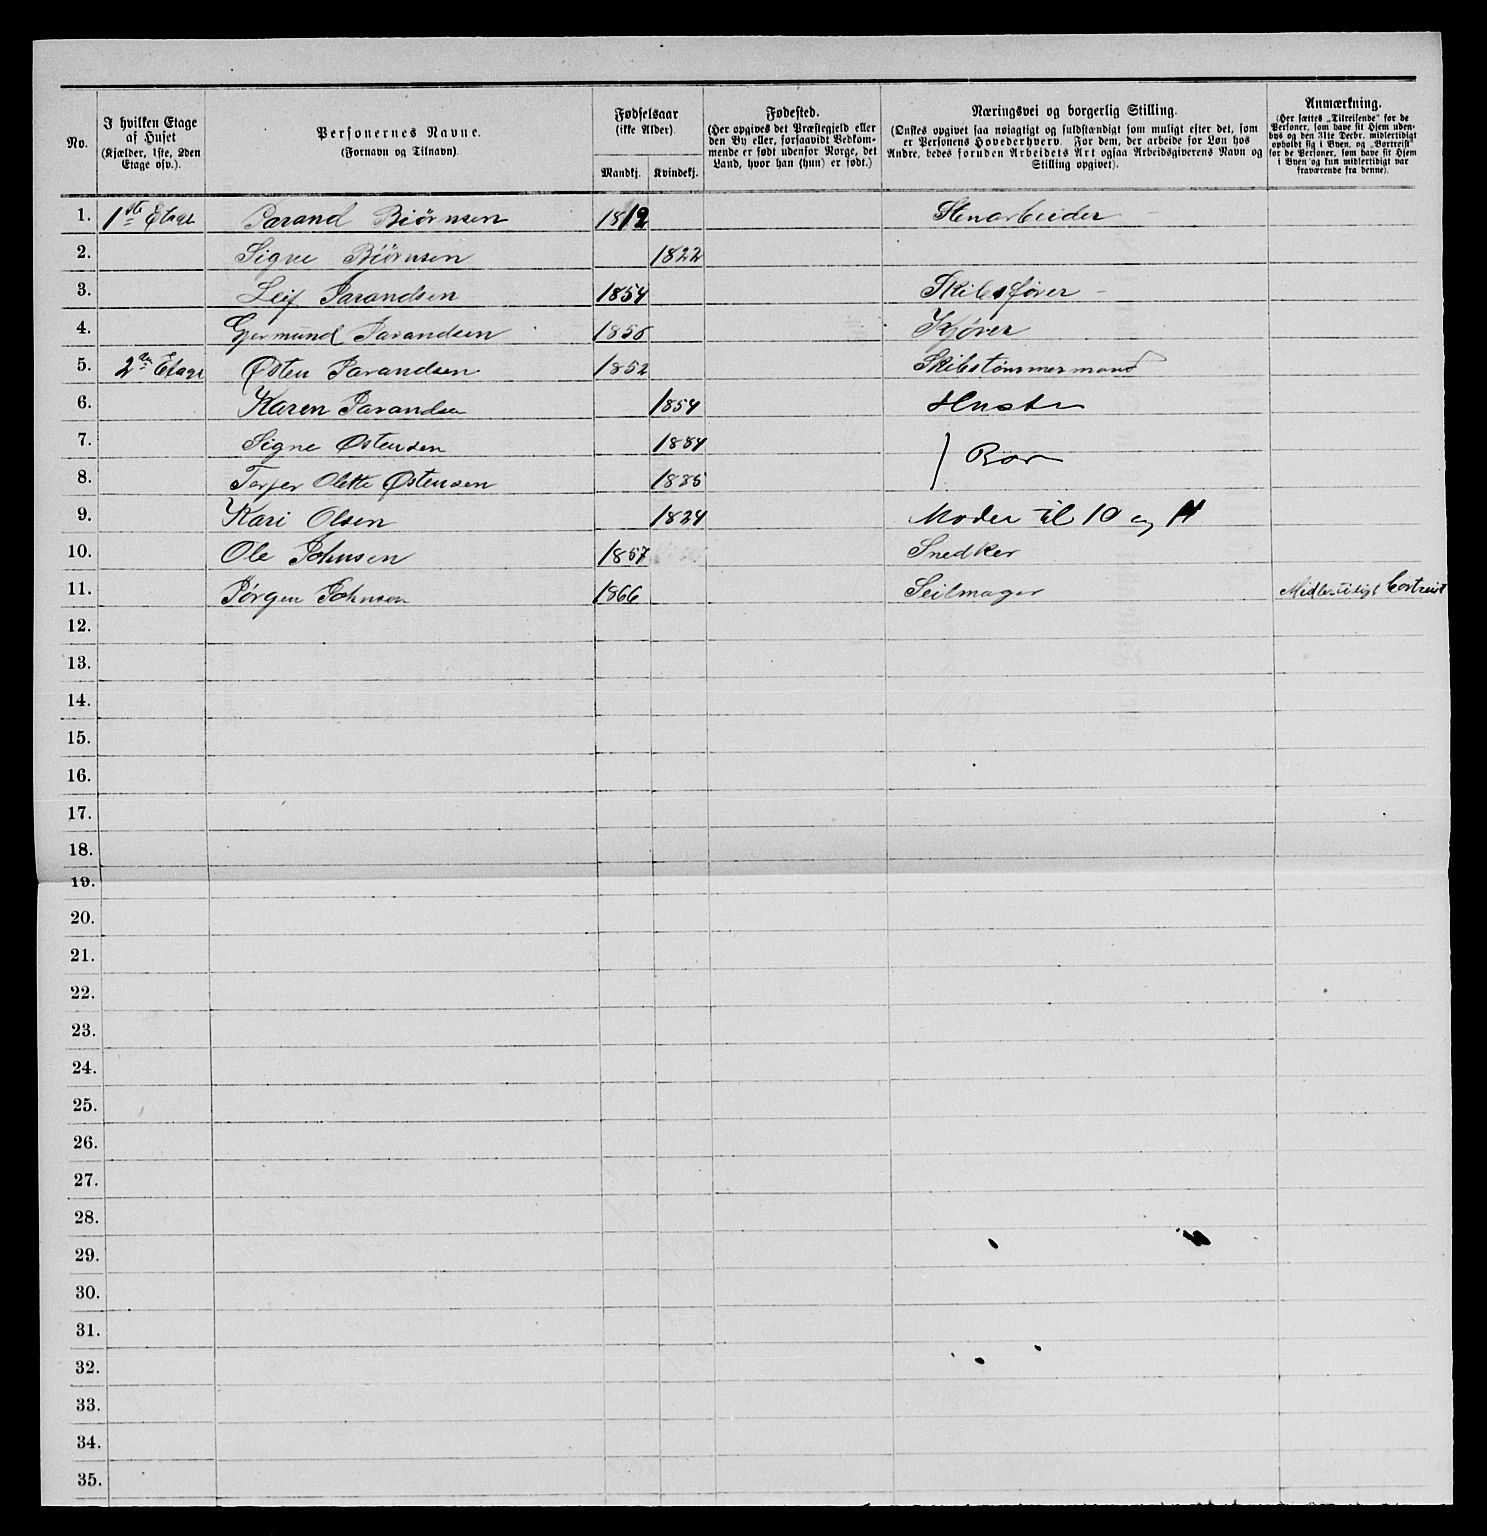 No.
I hvilken Etage af Huset
(Kjælder, 1ste, 2den Etage osv.).
Personernes Navne.
(Fornavn og Tilnavn).
Fødselsaar
(ikke Alder).
Mandkj. Kvindekj.
Fødested.
(Her opgives det Præstegjeld eller
den By eller, forsaavidt Vedkom-
mende er født udenfor Norge, det
Land, hvor han (hun) er født.)
Næringsvei og borgerlig Stilling.
(Ønskes opgivet saa nøiagtigt og fuldstændigt som muligt efter det, som
er Personens Hovederhverv. For dem, der arbeide for Løn hos
Andre, bedes foruden Arbeidets Art ogsaa Arbeidsgiverens Navn og
Stilling opgivet).
Anmærkning.
(Her sættes „Tilreisende“ for de
Personer, som have sit Hjem uden-
bys og den 31te Decbr. midlertidigt
opholdt sig i Byen, og „Bortreist“
for de Personer, som have sit Hjem
i Byen og kun midlertidigt var
fraværende fra denne).
1. 1ste Etage Tarand Biörnsen 1812 Stenarbeider
2. Signe Biörnsen 1822
3. Leif Tarandsen 1854 Skibsfører
4. Gjermund Tarandsen 1856 Kjører
5. 2den Etage Østen Tarandsen 1852 Skibstømmermand
6. Karen Tarandsen 1854 Hustru
7. Signe Østensen 1884 } Barn
8. Terjer Olette Østensen 1885
9. Kari Olsen 1824 Moder til 10 og 11
10. Ole Johnsen 1857 Snedker
11. Jörgen Johnsen 1866 Seilmager Midlertidigt bortreist
12.
13.
14.
15.
16.
17.
18.
19.
20.
21.
22.
23.
24.
25.
26.
27.
28.
29.
30.
31.
32.
33.
34.
35.